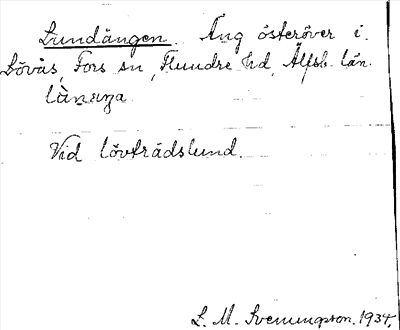 Lundängen. Äng österöver i.
Lövås, Fors sn, Flundre hd, Älfsb. län.
Vid lövträdslund.
L. M. Svenungsson. 1934.